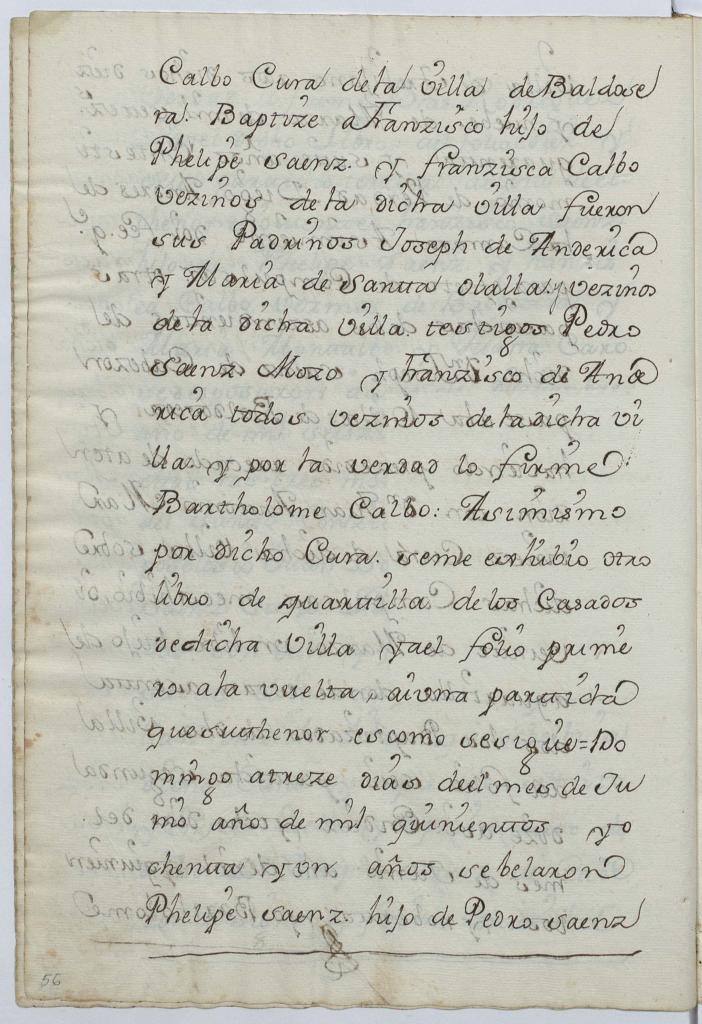 Calbo Cura de la villa de Baldose
ra. Baptize a Franzisco hijo de
Phelipe saenz. y franzisca Calbo
vezinos de la dicha villa fueron
sus Padrinos Joseph de Anderica
y Maria de santta olalla. y vezinos
de la dicha villa. testigos Pedro
saenz Mozo y Franzisco de Ande
rica todos vezinos de la dicha vi
lla. y por la verdad lo firme
Bartholome Calbo: Asimismo
por dicho Cura. seme exhibio otro
libro de quartilla de los Casados
de dicha villa y a el folio prime
ro a la vuelta, ai vna parttida
que su thenor es como se sigue = Do
mingo a treze dias de el mes de Ju
nio año de mil quinienttos y o
chentta y vn años, se belaron
Phelipe saenz. hijo de Pedro saenz
56